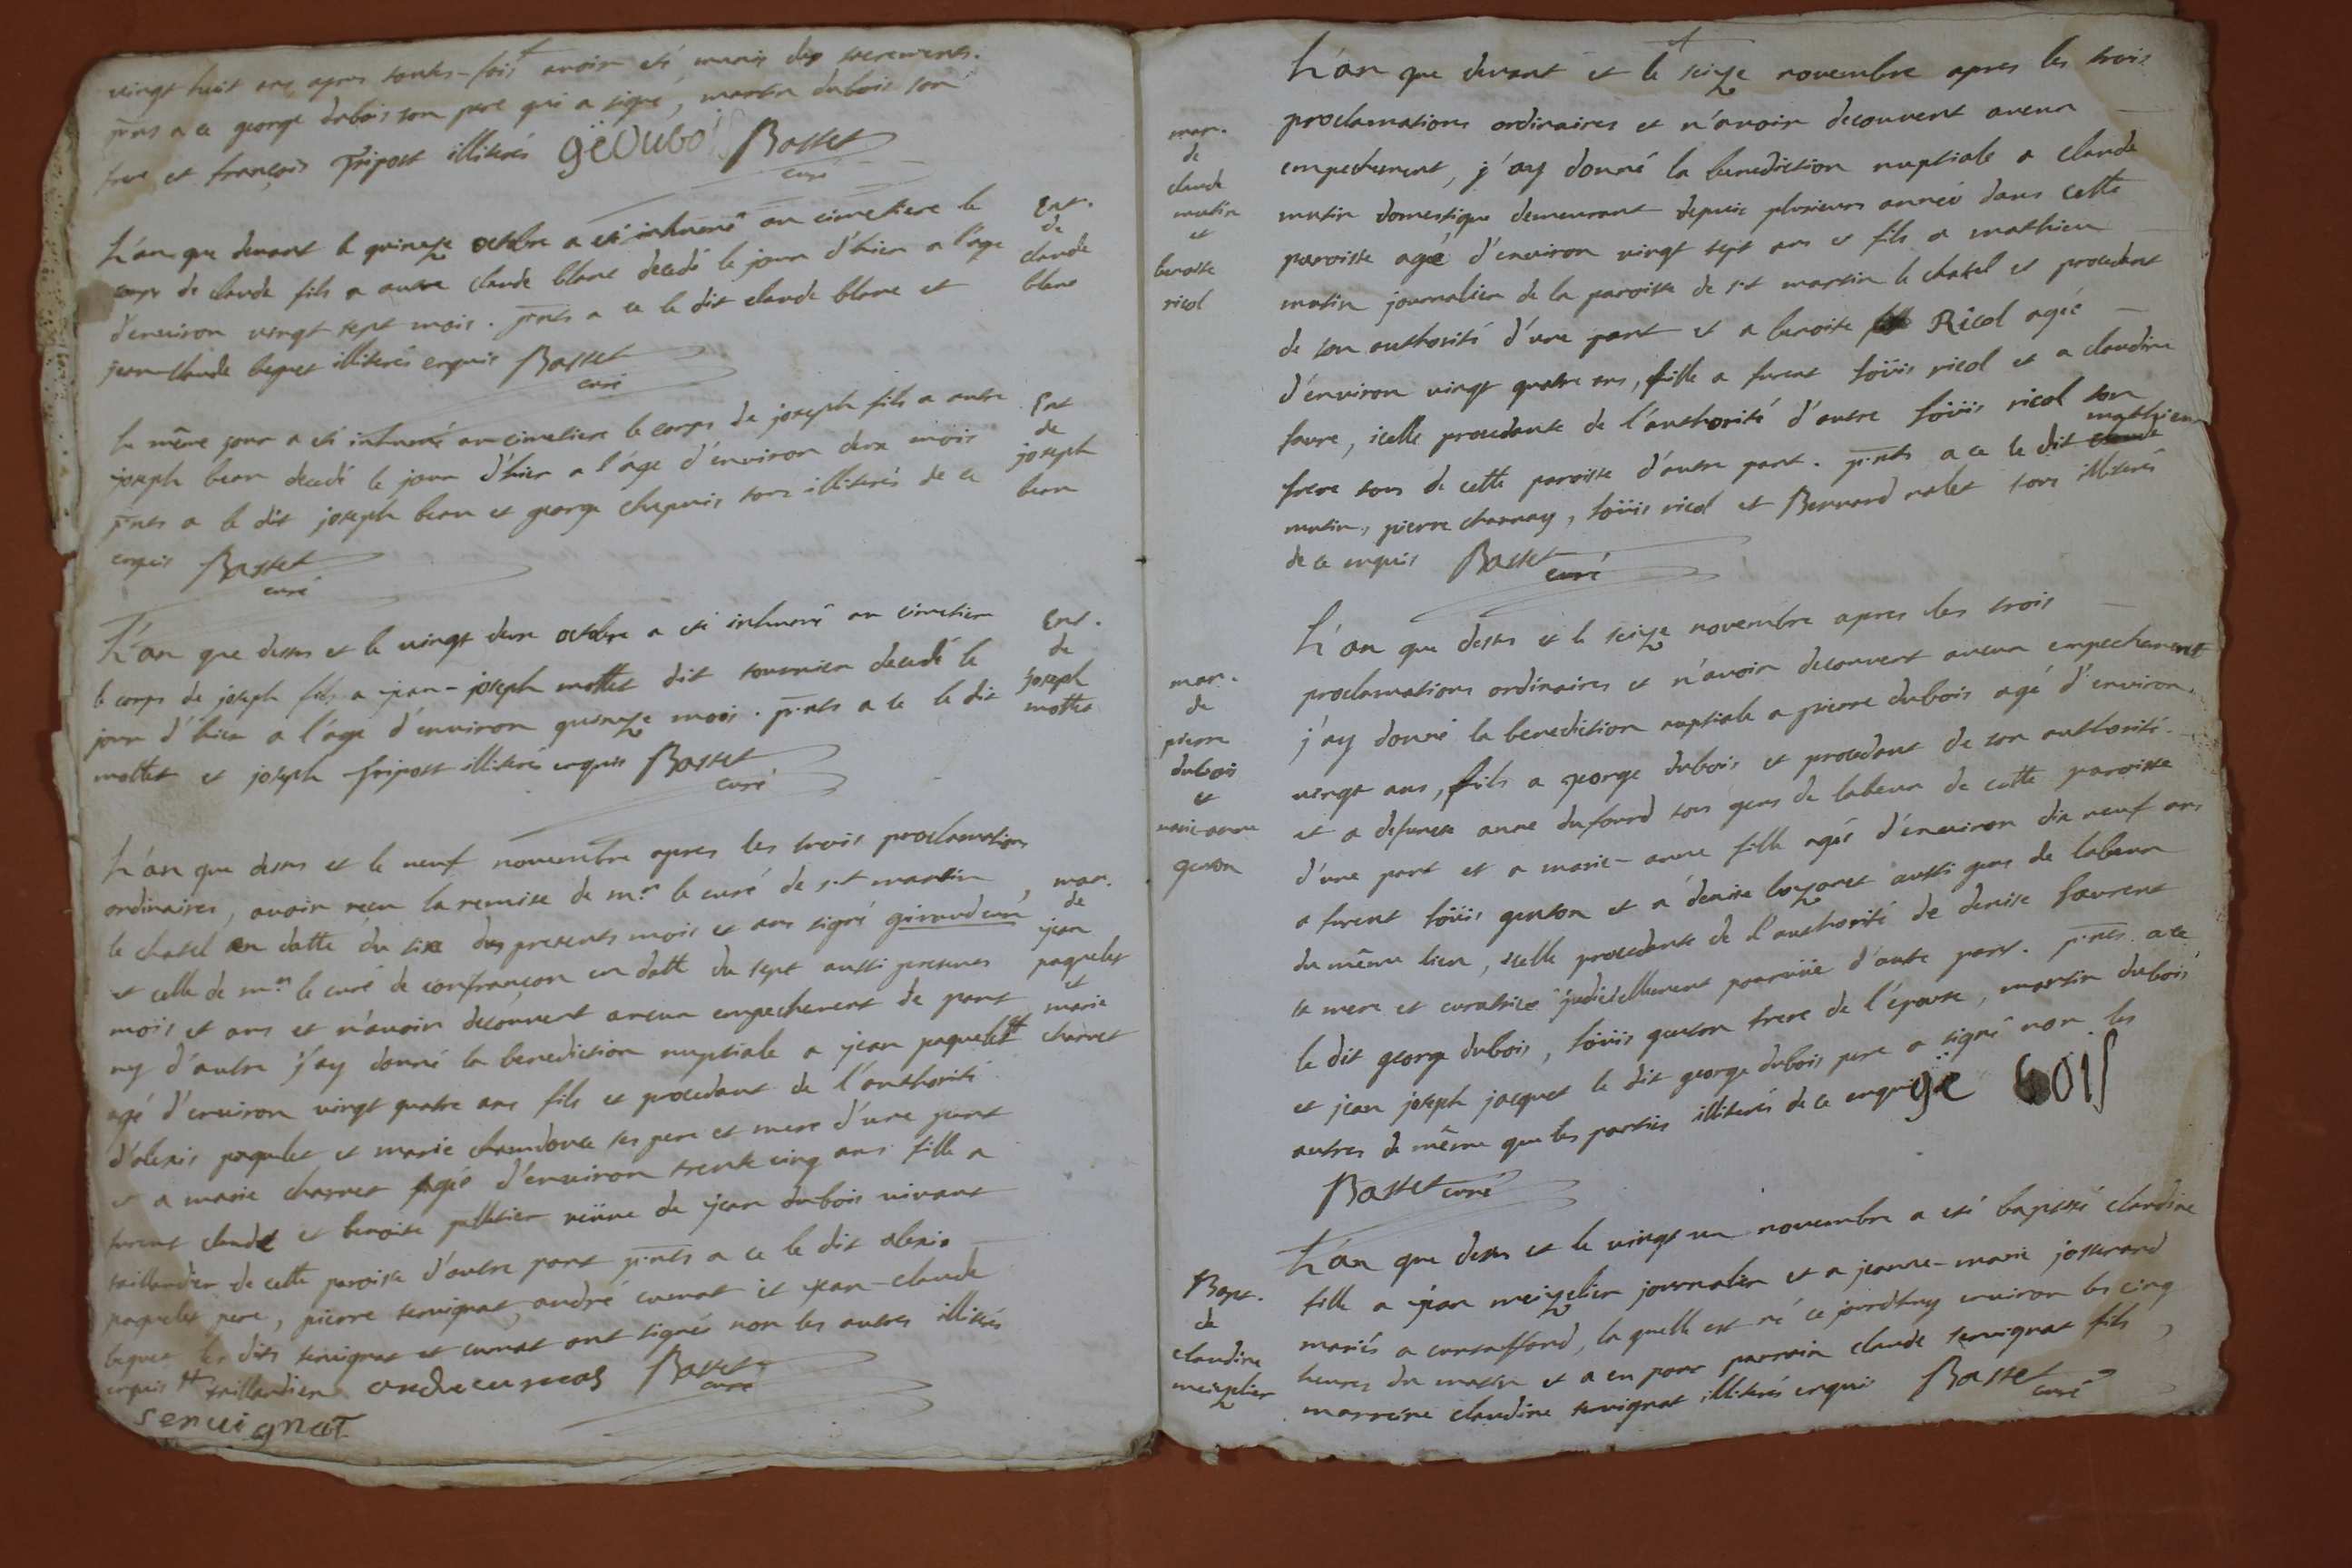 vingt huit ans, apres toutes-fois avoir eté munis des sacremens.
pnts a ce george dubois son pere qui a signé, martin dubois son
frere et françois fripost illiterés gëDubois Basset
curé
L'an que devant le quinze octobre a eté inhumé au cimetiere le
corps de claude fils a autre claude blanc decedé le jour d'hier a l'age
d'environ vingt sept mois. pnts a ce le dit claude blanc et
jean-claude beguet illiterés enquis Basset
curé
Ent.
de
claude
blanc
Le même jour a eté inhumé au cimetiere le corps de joseph fils a autre
joseph beau decedé le jour d'hier a l'âge d'environ deux mois
pnts a le dit joseph beau et george chapuis tous illiterés de ce
enquis Basset
curé
Ent
de
joseph
beau
L'an que dessus et le vingt deux octobre a eté inhumé au cimetiere
le corps de joseph fils a jean-joseph mottet dit tournier decedé le
jour d'hier a l'âge d'environ quinze mois. pnts a ce le dit
mottet et joseph fripost illiterés enquis Basset
curé
Ent.
de
joseph
mottet
L'an que dessus et le neuf novembre apres les trois proclamations
ordinaires, avoir recu la remise de mr. le curé de st martin
le chatel en datte du six des presents mois et ans signé giraud curé,
et celle de mr. le curé de confrançon en datte du sept aussi presents
mois et ans et n'avoir decouvert aucun empechement de part
ny d'autre j'ay donné la benediction nuptiale a jean paquelet
agé d'environ vingt quatre ans fils et procedant de l'authorité
d'alexis paquelet et marie chaudouet ses pere et mere d'une part
et a marie charvet agée d'environ trente cinq ans fille a
furent claude et benoite pelletier veüve de jean dubois vivant
taillandier de cette paroisse d'autre part pnts a ce le dit alexis
paquelet pere, pierre servignat, andré cumat et jean-claude
beguet les dits servignat et cumat ont signés non les autres illiterés
enquis tt taillandier andrecumas Basset
curé
servignat
mar.
de
jean
paquelet
et
marie
charvet
L'an que devant et le seize novembre apres les trois
proclamations ordinaires et n'avoir decouvert aucun
empechement, j'ay donné la benediction nuptiale a claude
mutin domestique demeurant depuis plusieurs année dans cette
paroisse agé d'environ vingt sept ans et fils a mathieu
mutin journalier de la paroisse de st martin le chatel et procedant
de son authorité d'une part et a benoite Ricol agée
d'environ vingt quatre ans, fille a furent loüis ricol et a claudine
favre, icelle procedante de l'authorité d'autre loüis ricol son
frere tous de cette paroisse d'autre part. pnts a ce le dit claude mathieu
mutin, pierre charnay, loüis ricol et Bernard nalet tous illiterés
de ce enquis Basset
curé
mar.
de
claude
mutin
et
benoite
ricol
L'an que dessus et le seize novembre apres les trois
proclamations ordinaires et n'avoir decouvert aucun empechement
j'ay donné la benediction nuptiale a pierre dubois agé d'environ
vingt ans, fils a george dubois et procedant de son authorité
et a defuncte anne dufourd tous gens de labeur de cette paroisse
d'une part et a marie-anne fille agée d'environ dix neuf ans
a furent loüis genton et a denise lauzanet aussi gens de labeur
du même lieu, icelle procedante de l'authorité de denise laurent
sa mere et curatrice judiciellement pourvüe d'autre part. pnts a ce
le dit george dubois, loüis genton frere de l'épouse, martin dubois
et jean joseph jacquet le dit george dubois pere a signé non les
autres de même que les parties illiterés de ce enquis gë bois
Basset curé
mar.
de
pierre
dubois
et
marie-anne
genton
L'an que dessus et le vingt un novembre a eté baptisé claudine
fille a jean meizelier journalier et a jeanne-marie josserand
mariés a cursaffond, la quelle est né ce jourdhuy environ les cinq
heures du matin et a eu pour parrain claude servignat fils,
marreine claudine servignat illiterés enquis Basset
curé
Bapt.
de
claudine
meizelier